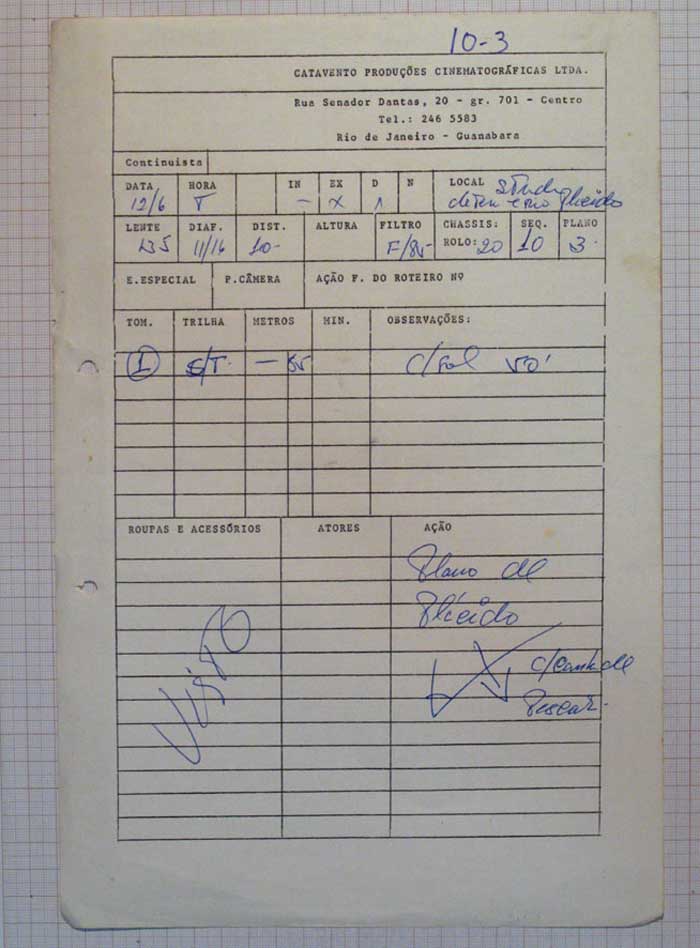 10-3
CATAVENTO PRODUÇÕES CINEMATOGRÁFICAS LTDA.
Rua Senador Dantas, 20 - gr. 701 - Centro
Tel.: 246 5583
Rio de Janeiro - Guanabara
Continuista
DATA HORA IN EX D N LOCAL
12/6 T — X
LENTE DIAF. DIST. ALTURA FILTRO CHASSIS: SEQ. PLANO
11/16 10- F/85 ROLO: 20 10 3
E.ESPECIAL P.CÂMERA AÇÃO F. DO ROTEIRO Nº
TOM. TRILHA METROS MIN. OBSERVAÇÕES:
1 S/T. — c/sol
ROUPAS E ACESSÓRIOS ATORES AÇÃO
Plano de
Plácido
Visto
Pescar.